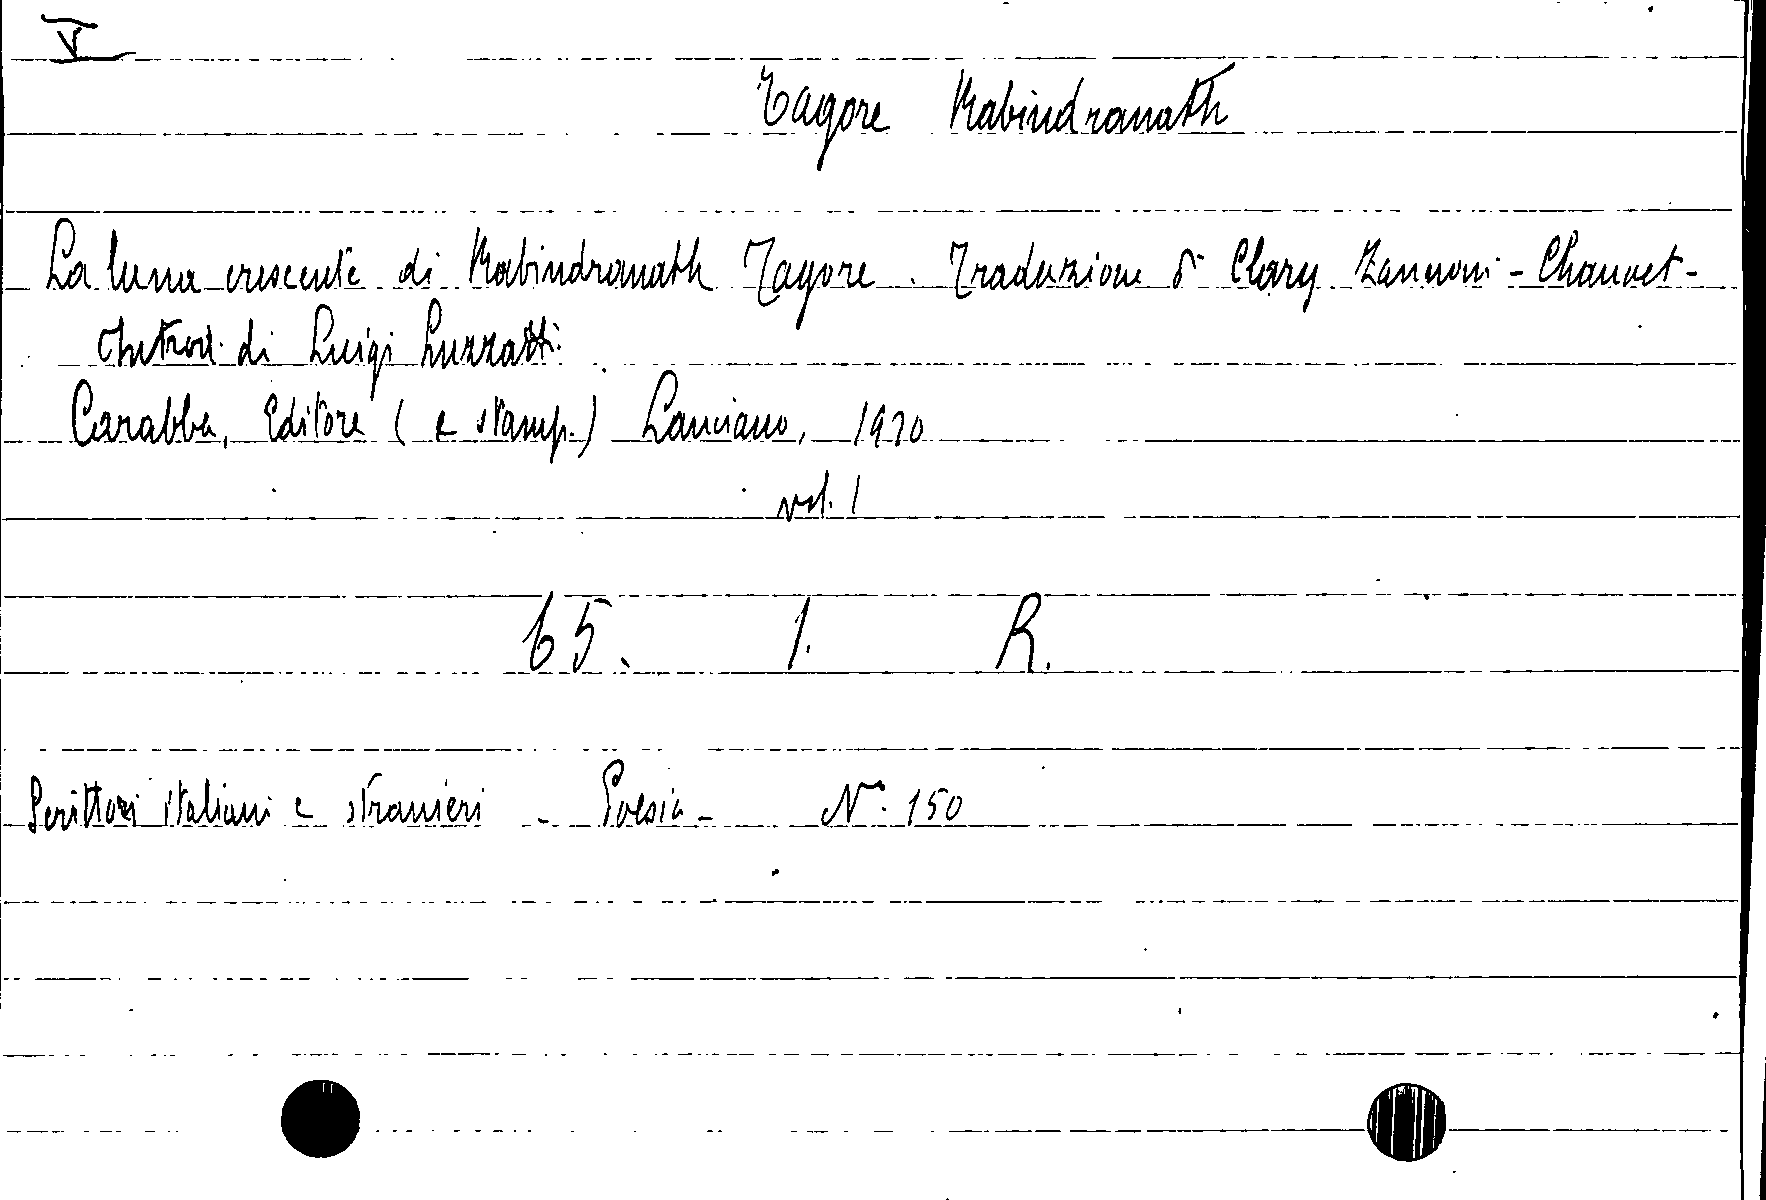 V
Tagore Rabindranath
La luna crescente di Rabindranath Tagore. Traduzione di Clary Zannoni-Chauvet-
Introd. di Luigi Luzzatti.
Carabba, Editore (e stamp.) Lanciano, 1920
vol. 1
65. 1. R.
Scrittori italiani e stranieri - Poesia - No. 150